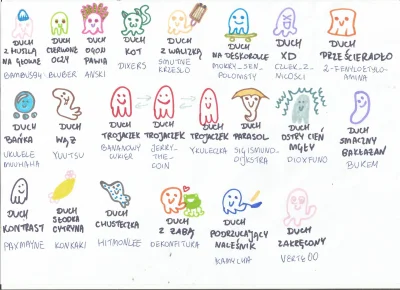 DUCH
Z HUSTĄ
NA GŁOWIE
BAMBUS94
DUCH
CZERWONE
OCZY
BLUBER
DUCH
OGON
PAWIA
ANSKI
DUCH
KOT
DIXERS
DUCH
Z WALIZKĄ
SMUTNE
KRZESŁO
DUCH
NA DESKOROLCE
MOKRY_SEN_
POLONISTY
DUCH
XD
CZLEK_Z_
NICOŚCI
DUCH
PRZEŚCIERADŁO
2-FENYLOETYLO-
AMINA
DUCH
BAŃKA
UKULELE
MUUHAHA
DUCH
WĄŻ
YUUTSU
DUCH
TROJACZEK
BANANOWY
CUKIER
DUCH
TROJACZEK
JERRY-
THE-
COIN
DUCH
TROJACZEK
YKULECZKA
DUCH
PARASOL
SIGISMUND_
DIJKSTRA
DUCH
OSTRY CIEŃ
MGŁY
DIOXFUNO
DUCH
SMACZNY
BAKŁAŻAN
BUKEM
DUCH
KONTRAST
PAXMAYNE
DUCH
SŁODKA
CYTRYNA
KONKAKI
DUCH
CHUSTECZKA
HITMONLEE
DUCH
Z ŻABĄ
DEKONFITURA
DUCH
PODRZUCAJĄCY
NALEŚNIK
KAMYLHA
DUCH
ZAKRĘCONY
VERTE00